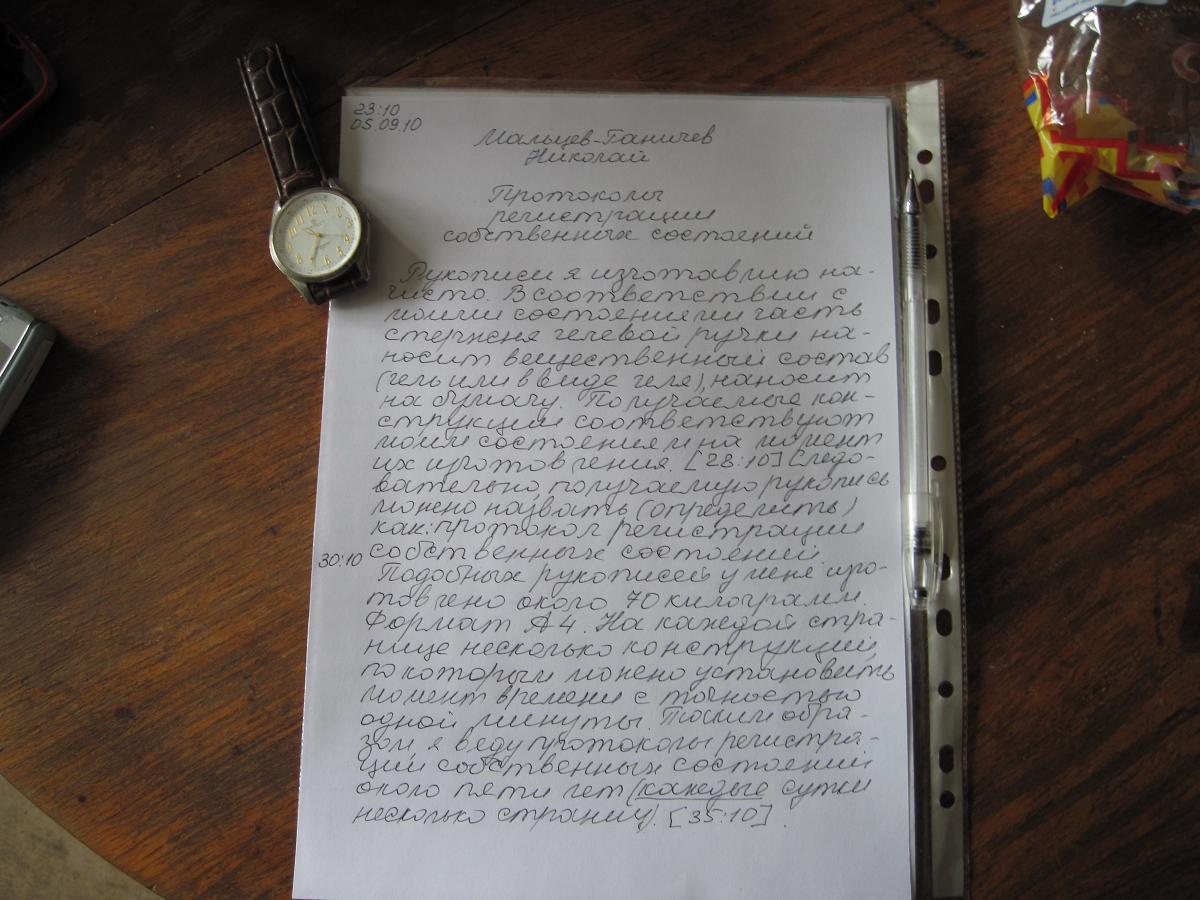 23:10
05.09.10
Мальцев-Ганичев
Николай
Протоколы
регистрации
собственных состояний
Рукописи я изготавливаю на-
чисто. В соответствии с
моими состояниями часть
стержня гелевой ручки на-
носит вещественный состав
(гель или в виде геля), наносит
на бумагу. Получаемые кон-
струкции соответствуют
моим состояниям на момент
их изготовления. [28:10] Следо-
вательно, получаемую рукопись
можно назвать (определить)
как: протокол регистрации
собственных состояний.
30:10
Подобных рукописей у меня изго-
товлено около 70 килограмм.
Формат А4. На каждой стра-
нице несколько конструкций,
по которым можно установить
момент времени с точностью
одной минуты. Таким обра-
зом, я веду протоколы регистра-
ции собственных состояний
около пяти лет (каждые сутки
несколько страниц). [35:10].